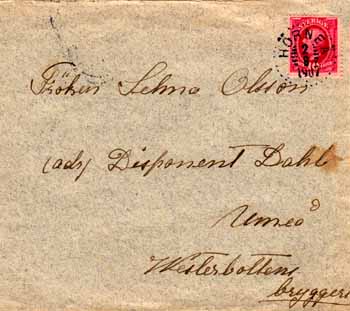 HÖRNEF
2
8
1907
Fröken Selma Olsson
(adr Disponent Dahl
Umeå
Westerbottens
bryggeri